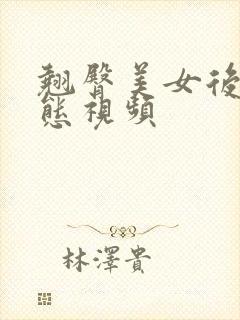 翹臀美女後
態視頻
林澤貴